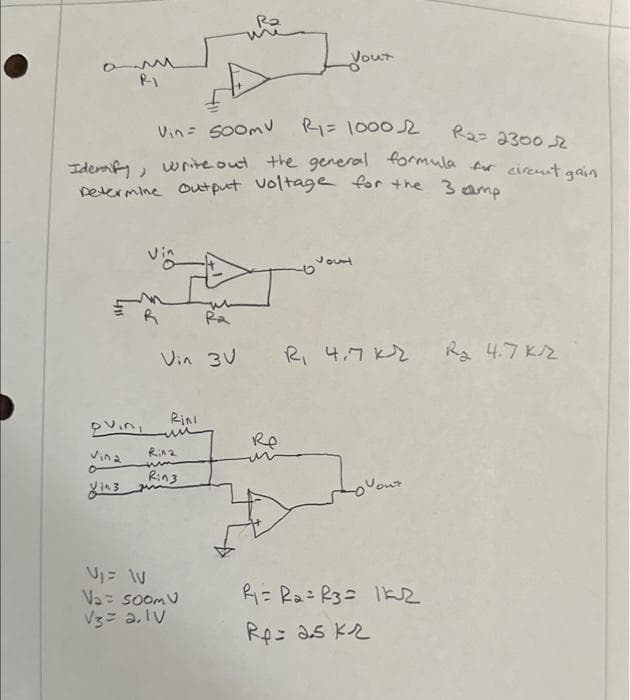 R2
R1
Vout
-
+
Vin = 500mV R1 = 1000 Ω R2 = 2300 Ω
Identify, write out the general formula for circuit gain
Determine output voltage for the 3 amp
Vin
+
-
Vout
R R2
Vin 3V R1 4.7 KΩ R2 4.7 KΩ
Vin1 Rin1
Vin2 Rin2
Vin3 Rin3
Rf
-
+
Vout
V1 = 1V
V2 = 500mV
V3 = 2.1V
R1 = R2 = R3 = 1KΩ
Rf = 2.5 KΩ